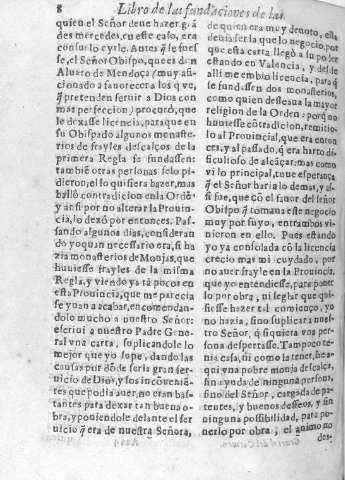 8 Libro de las fundaciones de las
quien el Señor deue hazer grã
des mercedes, en este caso, era
consuelo oyrle. Antes q̃ se fuese
se, el Señor Obispo, que es don
Aluaro de Mendoça (muy afi-
cionado a fauorecer a los q̃ ve,
q̃ pretenden seruir a Dios con
mas perfeccion) procurò, que
le dexasse licencia, para que en
su Obispado algunos moneste-
rios de frayles descalços de la
primera Regla se fundassen:
tambiẽ otras personas selo pi-
dieron; el lo quisiera hazer, mas
hallò contradicion en la Ordẽ
y ansi por no alterar la Prouin-
cia, lo dexó por entonces. Pas-
sando algunos dias, consideran
do yo quan necessario era, si ha
zia monasterios de Monjas, que
huuiesse frayles de la misma
Regla, y viendo ya tã pocos en
esta Prouincia, que me parecia
se yuan a acabar, encomendan-
dolo mucho a nuestro Señor:
escriui a nuestro Padre Gene-
ral vna carta, suplicandole lo
mejor que yo supe, dando las
causas por dõde seria gran ser-
uicio de Dios, y los incoueniẽ-
tes que podia auer, no eran bas-
tantes para dexar tan buena o-
bra, y poniendole delante el ser
uicio q̃ era de nuestra Señora,
de quien era muy deuoto, ella
deuia ser la que lo negocio, por
que esta carta llegò a su poder
estando en Valencia, y desde
alli me embio licencia, para q̃
se fundassen dos monasterios,
como quien desseaua la mayor
religion de la Orden: porq̃ no
huuiesse cõtradicion, remitio-
lo al Prouincial, que era enton
ces, y al passado, q̃ era harto di-
ficultoso de alcãçar: mas como
vi lo principal, tuue esperança
q̃ el Señor haria lo demas, y an-
si fue, que cõ el fauor del señor
Obispo, q̃ tomaua este negocio
muy por suyo, entrambos vi-
nieron en ello. Pues estando
yo ya consolada cõ la licencia
crecio mas mi cuydado, por
no auer frayle en la Prouincia,
que yo entendiesse, para poner
lo por obra, ni seglar que qui-
siesse hazer tal comienço, yo
no hazia, sino suplicar a nues-
tro Señor, q̃ siquiera vna per-
sona despertasse. Tampoco te-
nia casa, ni como la tener, he a-
qui vna pobre monja descalça,
sin ayuda de ninguna persona,
sino del Señor, cargada de pa-
tentes, y buenos desseos, y sin
ninguna possibilidad, para po-
nerlo por obra, el animo no
des-